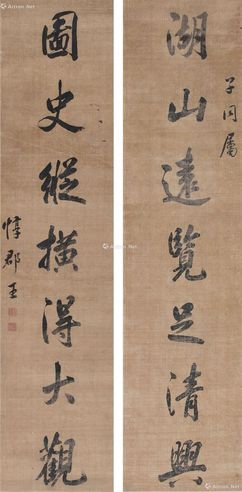 子同屬
湖山遠覽足清興
圖史縱橫得大觀
惇郡王